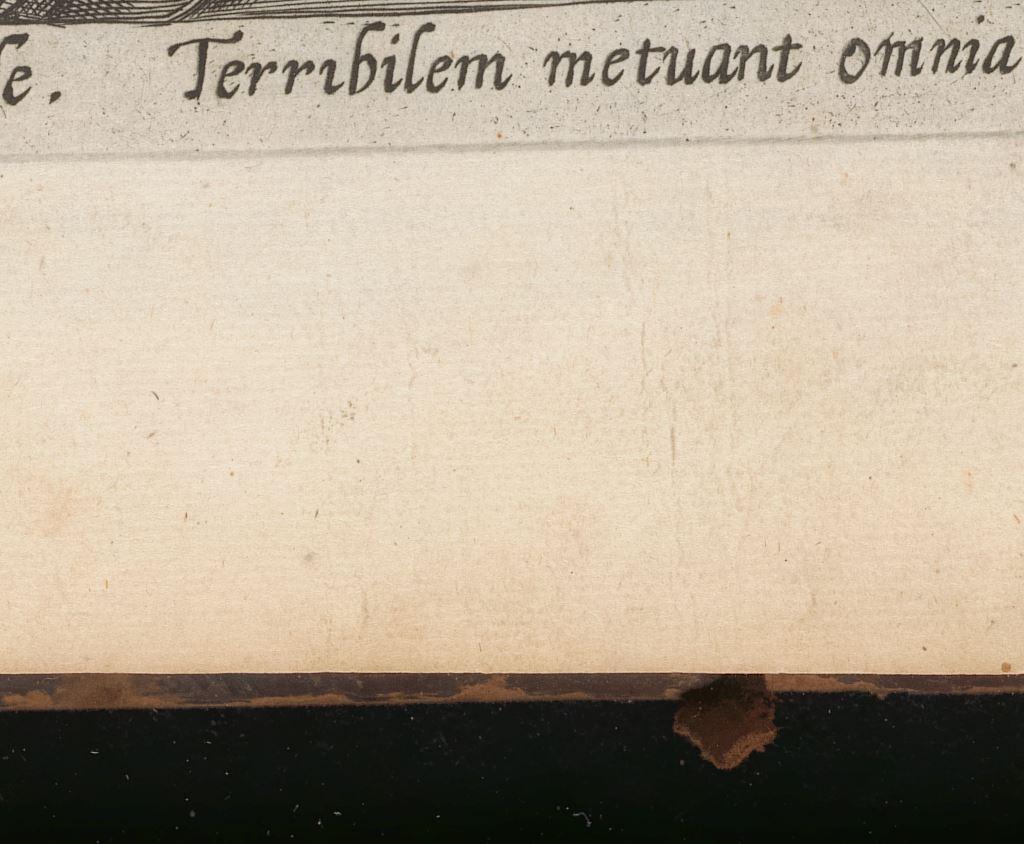 le. Terribilem metuant omnia